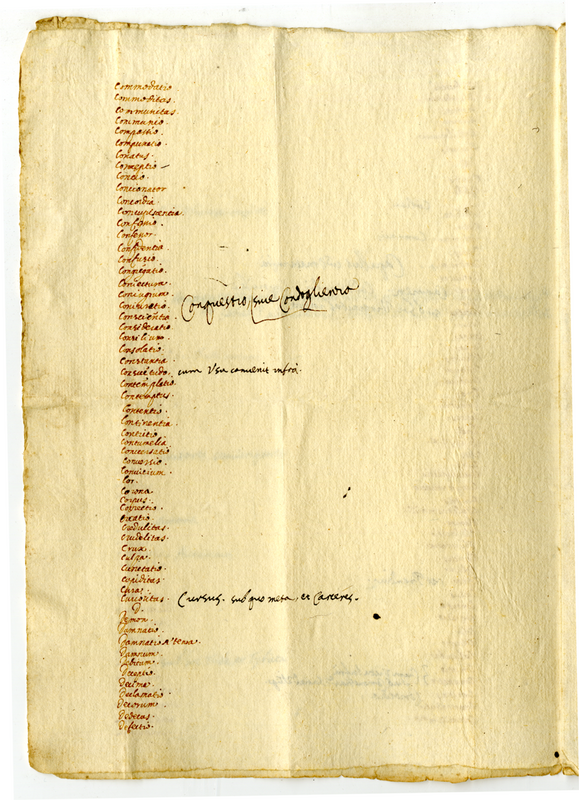 Commodatio
Commoditas.
Communitas.
Communio.
Compositio.
Compunctio.
Conatus.
Conceptio
Concilio.
Concionator
Concordia.
Concupiscentia
Confessio.
Confessor.
Confidentia
Confusio.
Congregatio.
Coniectura.
Coniugium
Coniuratio.
Conscientia.
Consideratio.
Consilium.
Consolatio.
Constantia.
Consuetudo. cum Usu convenit infra.
Contemplatio.
Contemptus.
Contentio.
Continentia.
Contritio.
Contumelia.
Conversatio.
Conversio.
Convitium.
Cor.
Corona
Corpus.
Correctio.
Creatio.
Credulitas.
Crudelitas.
Crux.
Culpa.
Cunctatio.
Cupiditas.
Curas.
Curiositas.
Conquestio, sive Condoglienza
Cursus. sub quo meta, et Carceres.
D.
Demon.
Damnatio.
Damnatio æterna.
Damnum.
Debitum.
Deceptio.
Decima
Declamatio.
Decorum.
Dedecus.
Defectio.